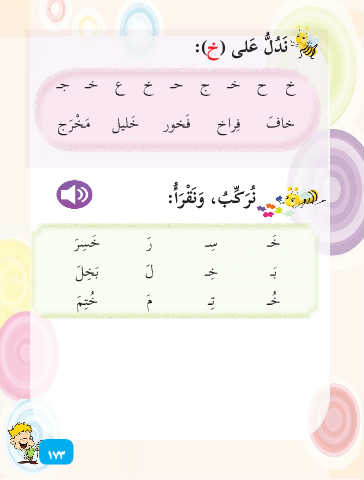 نَدُلُّ عَلى (خ):
خ ح خـ ج حـ خ ع خـ جـ
خافَ فِراخ فَخور خَليل مَخْرَج
نُرَكِّبُ، وَنَقْرَأُ:
خَـ سِـ رَ خَسِرَ
بَـ خِـ لَ بَخِلَ
خُـ تِـ مَ خُتِمَ
١٧٣